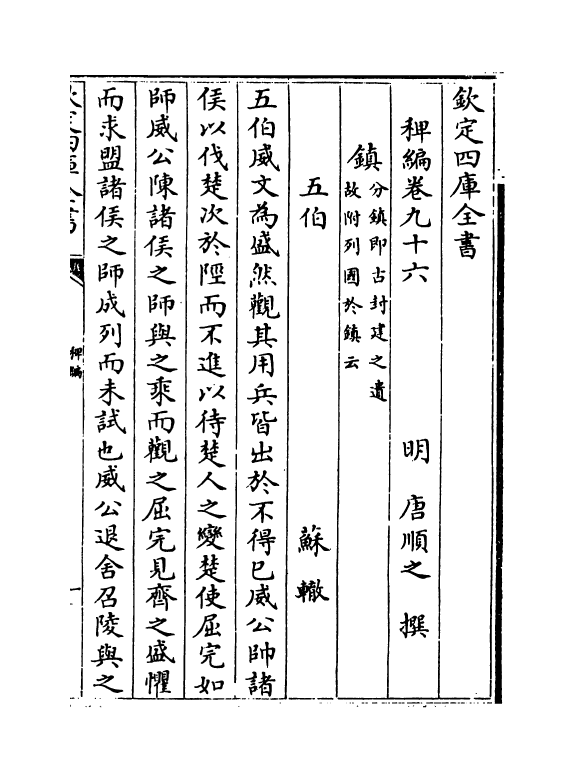 欽定四庫全書
稗編卷九十六　　明　唐順之　撰
鎮分鎮即古封建之遺故附列國於鎮云
五伯　　蘇轍
五伯威文為盛然觀其用兵皆出於不得已威公帥諸
侯以伐楚次於陘而不進以待楚人之變楚使屈完如
師威公陳諸侯之師與之乘而觀之屈完見齊之盛懼
而求盟諸侯之師成列而未試也威公退舍召陵與之
稗編
一